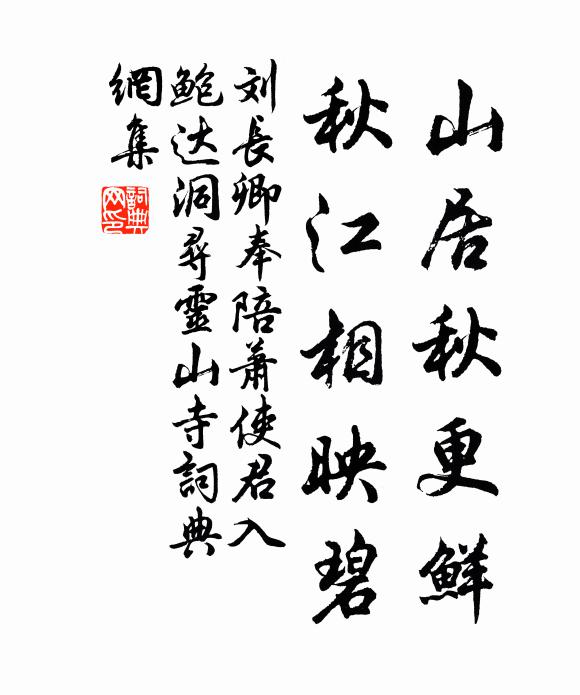 山居秋更鮮
秋江相映碧
刘長卿奉陪蕭使君入
鲍达洞尋靈山寺詞典
網集
詞典
网印